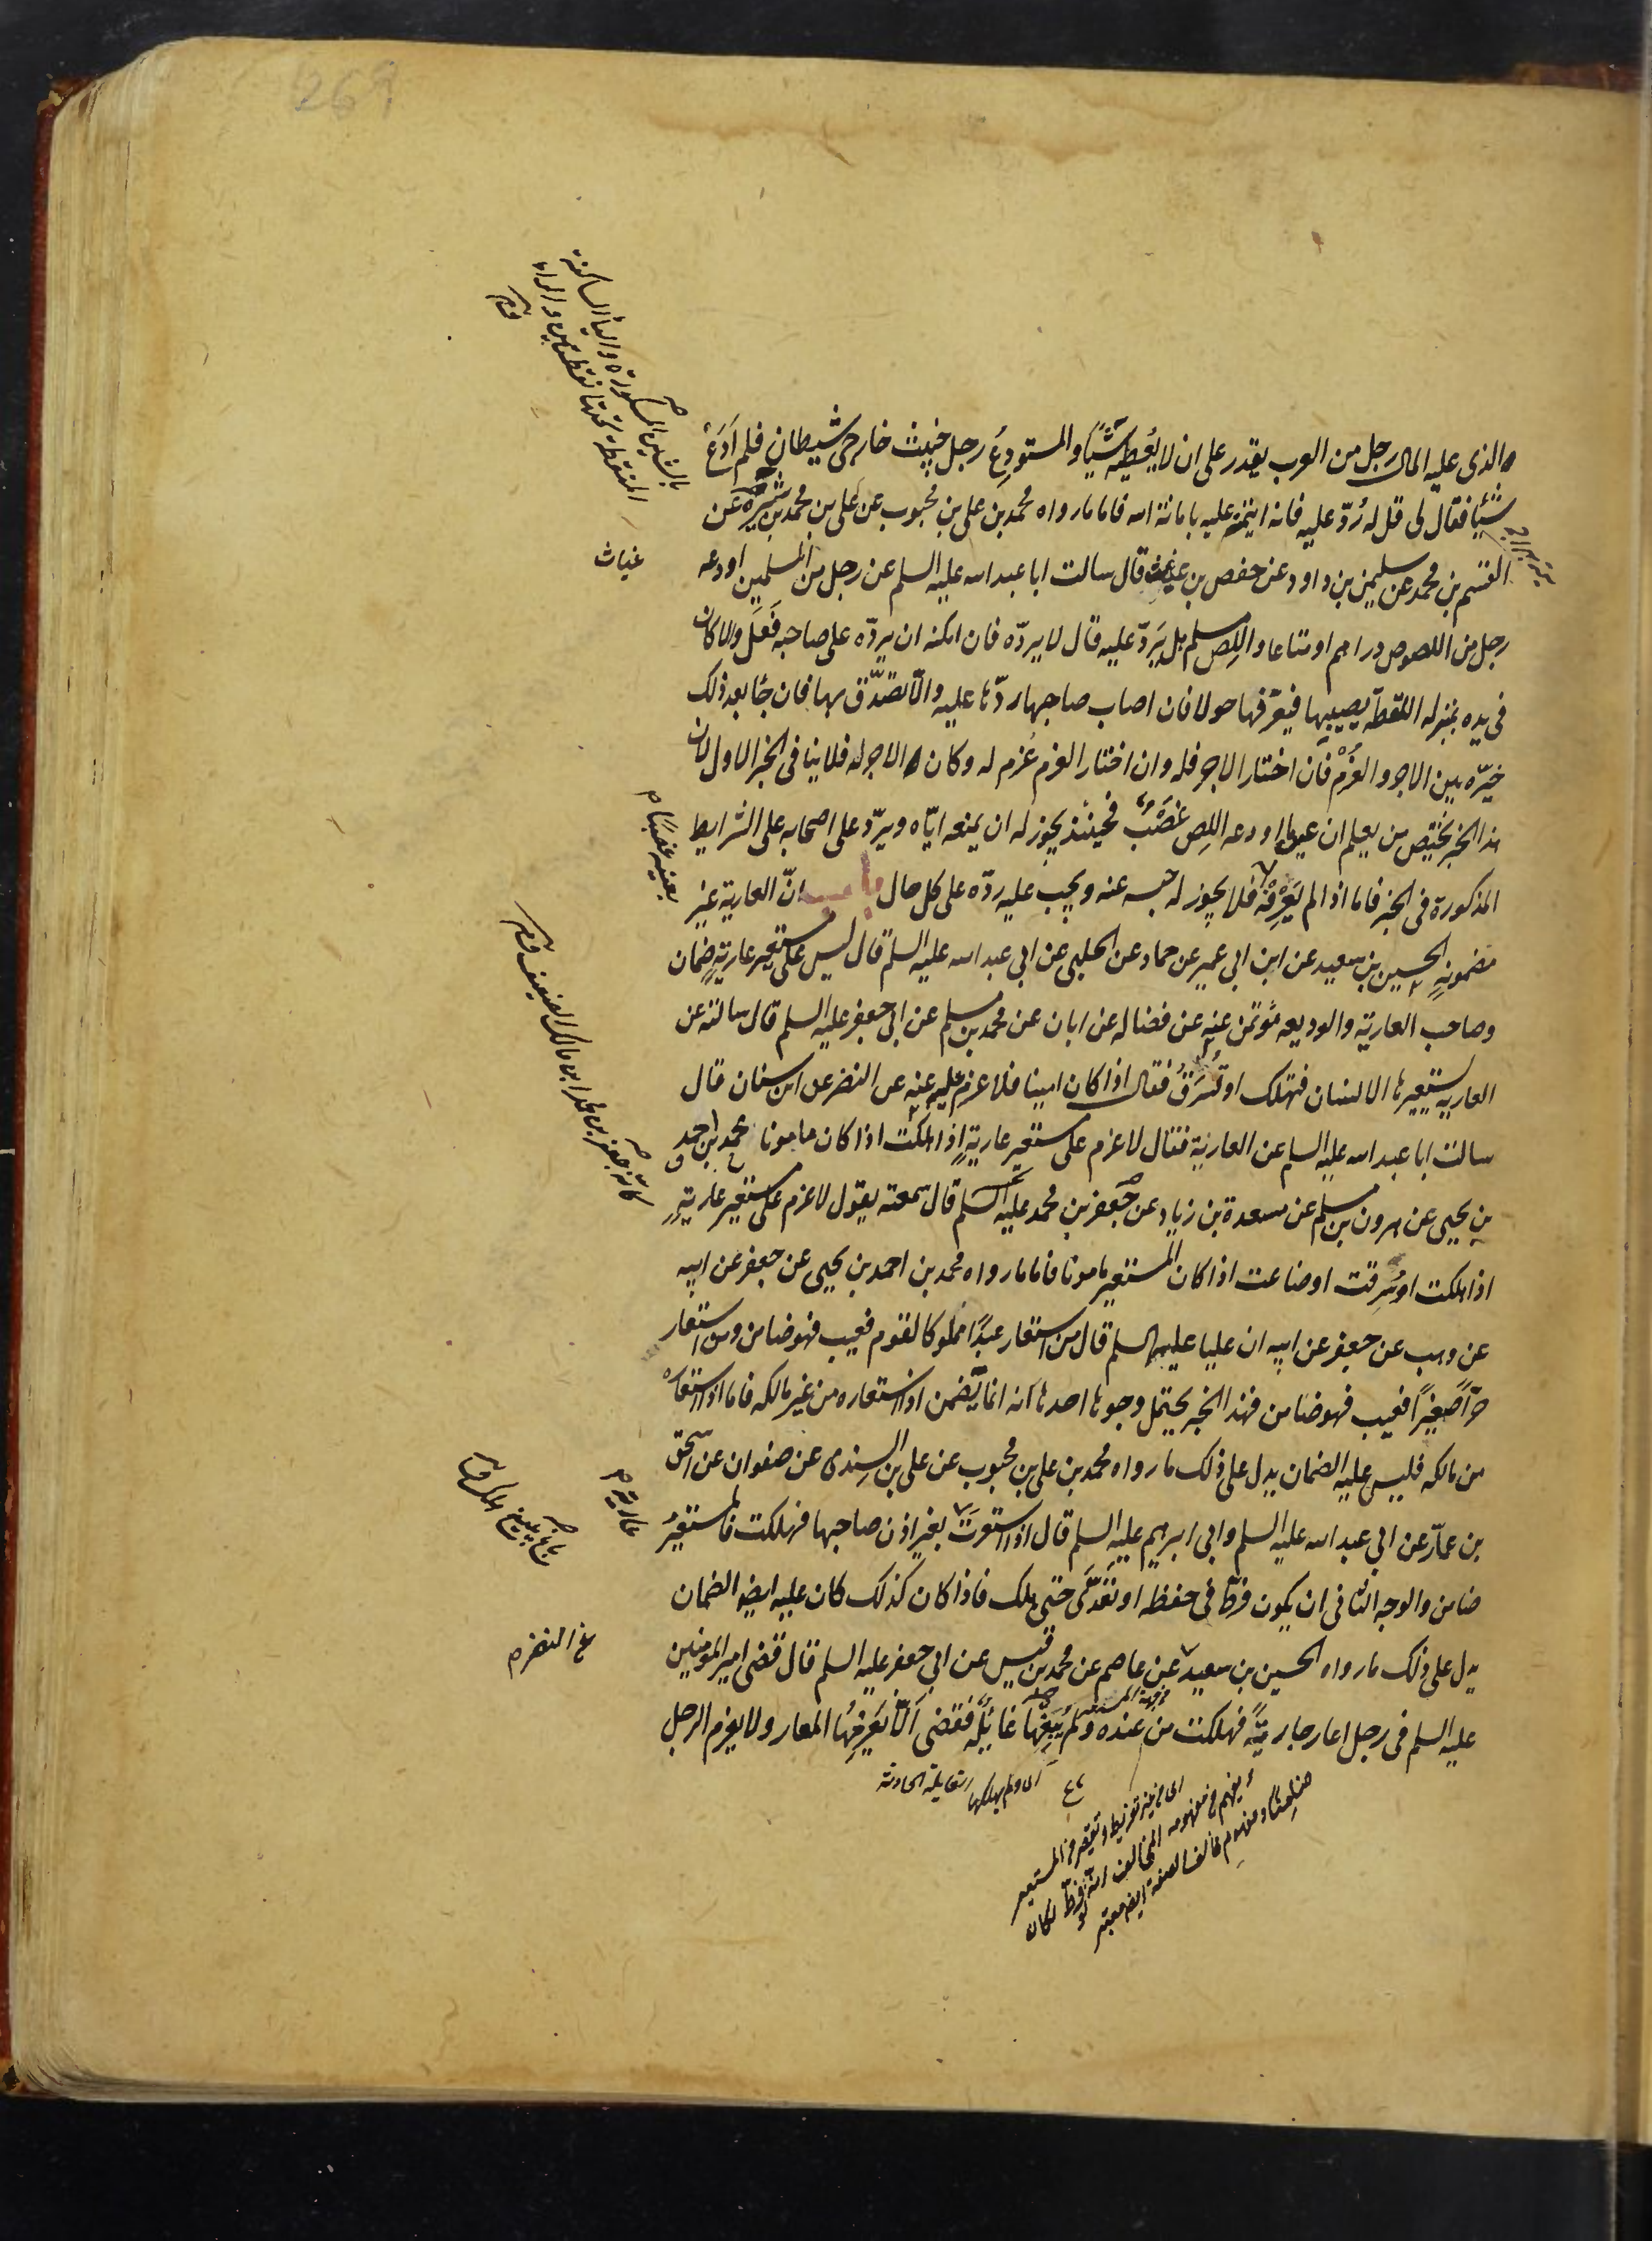 والذى عليه المال رجل من العرب يقدر على ان لا يُعطيه شيئًا والمستودِعُ رجل خبيث خارجى شيطان فلم اَدَعْ
شيئا فقال لى قل له رُدّ عليه فانه ائتمنه عليه بامانة الله فاما ما رواه محمد بن على بن محبوب عن على بن محمد بن شِيْرَه عن
القسم بن محمد عن سليمن بن داود عن حفص بن غياث قال سالت ابا عبد الله عليه السلم عن رجل من المسلمين اودعه
رجل من اللصوص دراهم او متاعا واللِص مسلم هل يَرُدّ عليه قال لا يردّه فان امكنه ان يردّه على صاحبه فَعَلَ والا كان
فى يده بمنزله اللقطة يصيبها فيعرّفها حولا فان اصاب صاحبها ردّها عليه والّا تصَدّق بها فان جا بعد ذلك
خيّره بين الاجر والغُرْم فان اختار الاجر فله وان اختار الغرم غرم له وكان الاجر له فلا ينافى الخبر الاول لان
هذا الخبر يختص من يعلم ان عين ما اودعه اللِص غصْبٌ فحينئذ يجوز له ان يمنعه ايّاه ويردّ على اصحابه على الشرايط
المذكورة فى الخبر فاما اذا لم يَعْرِفْه فلا يجوز له حبسه عنه ويجب عليه ردّه على كل حال باب انّ العارية غير
مضمونةٍ الحسين بن سعيد عن ابن ابى عمير عن حماد عن الحلبى عن ابى عبد الله عليه السلم قال ليس على مستعير عاريةٍ ضمان
وصاحب العارية والوديعه مؤتمن عنه عن فضاله عن ابان عن محمد بن مسلم عن ابى جعفر عليه السلم قال سالته عن
العارية يستعيرها الانسان فتهلك او تُسرَقُ فقال اذا كان امينا فلا غرم عليه عنه عن النضر عن ابن سنان قال
سالت ابا عبد الله عليه السلم عن العارية فقال لا غرم على مستعير عاريةٍ اذا هلكت اذا كان مامونا محمد بن احمد
بن يحيى عن هرون بن مسلم عن مسعدة بن زياد عن جعفر بن محمد عليه السلم قال سمعته يقول لا غرم على مستعير عاريةٍ
اذا هلكت او سُرقت او ضاعت اذا كان المستعير مامونا فاما ما رواه محمد بن احمد بن يحيى عن جعفر عن ابيه
عن وهب عن جعفر عن ابيه ان عليا عليه السلم قال من استعار عبدًا مملوكا لقوم فعيب فهو ضامن ومن استعار
حرّاً صغيرًا فعيب فهو ضامن فهذا الخبر يحتمل وجوها احدها انه انما يضمن اذا استعاره من غير مالكه فاما اذا استعاره
من مالكه فليس عليه الضمان يدل على ذلك ما رواه محمد بن على بن محبوب عن على بن السِندى عن صفوان عن اسحق
بن عمّار عن ابى عبد الله عليه السلم وابى ابرهيم عليه السلم قال اذا استعرت بغير اذن صاحبها فهلكت فالمستعيرُ
ضامن والوجه الثانى ان يكون فرّط فى حفظه او تعَدّى حتى هلك فاذا كان كذلك كان عليه ايضا الضمان
يدل على ذلك ما رواه الحسين بن سعيد عن عاصم عن محمد بن قيس عن ابى جعفر عليه السلم قال قضى امير المومنين
عليه السلم فى رجل اعار جاريةً فهلكت من عنده ولم يَبْغِها غائِلةً فقضى اَلّا يَغرِمَها المعار ولا يغرم الرجل
بالشين المكسورة والياء الساكنة
المنقطة تحتها نقطتين والراء
غياث
بعينه غصبا م
عارية م
عن النضر م